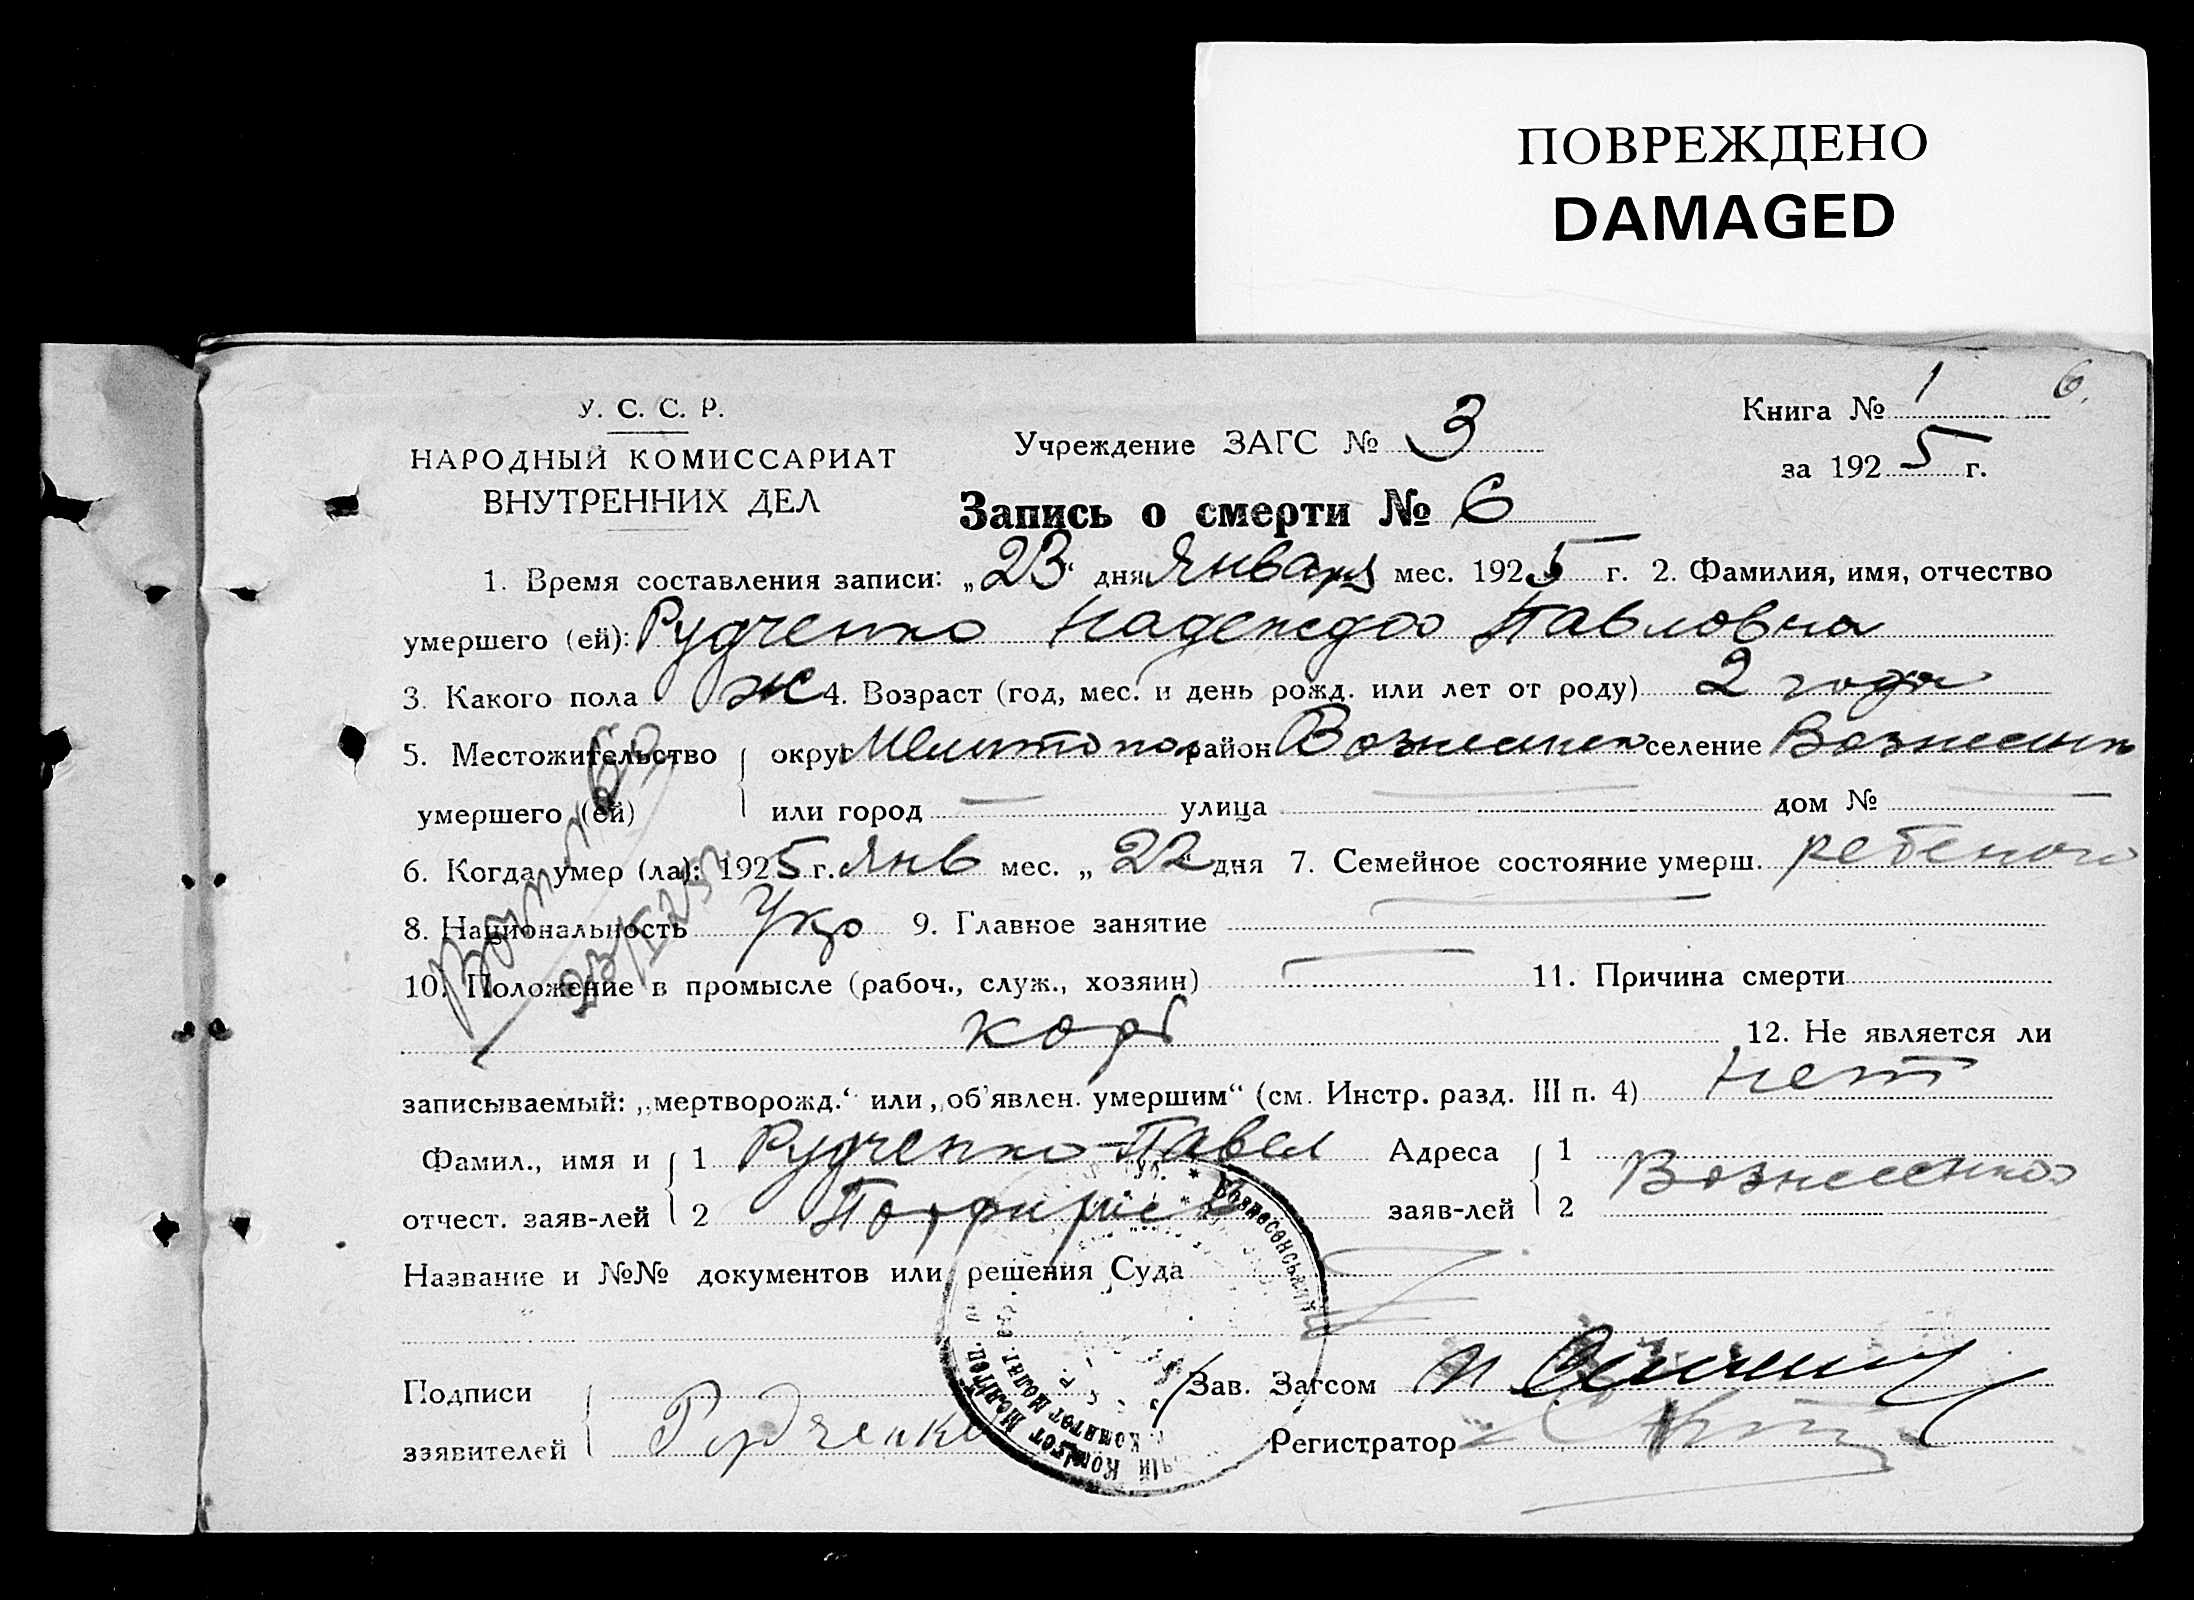 ПОВРЕЖДЕНО
DAMAGED
6.
У. С. С. Р.
НАРОДНЫЙ КОМИССАРИАТ
ВНУТРЕННИХ ДЕЛ
Учреждение ЗАГС № 3
Книга № 1
за 1925 г.
Запись о смерти № 6
1. Время составления записи: „23“ дня Января мес. 1925 г. 2. Фамилия, имя, отчество
умершего (ей): Рудченко Надежда Павловна
3. Какого пола ж 4. Возраст (год, мес. и день рожд. или лет от роду) 2 года
5. Местожительство умершего (ей) округ Мелитопол район Вознесенск селение Вознесенк
или город — улица — дом № —
6. Когда умер (ла): 1925 г. Янв мес. „22 дня 7. Семейное состояние умерш. ребенок
8. Национальность Укр 9. Главное занятие —
10. Положение в промысле (рабоч., служ., хозяин) — 11. Причина смерти
корь 12. Не является ли
записываемый: „мертворожд.“ или „об'явлен. умершим“ (см. Инстр. разд. III п. 4) нет
Фамил., имя и отчест. заяв-лей 1 Рудченко Павел Адреса заяв-лей 1 Вознесенка
2 Порфирьев 2
Название и №№ документов или решения Суда
Подписи заявителей Рудченко
Зав. Загсом
Регистратор
Вознесенський